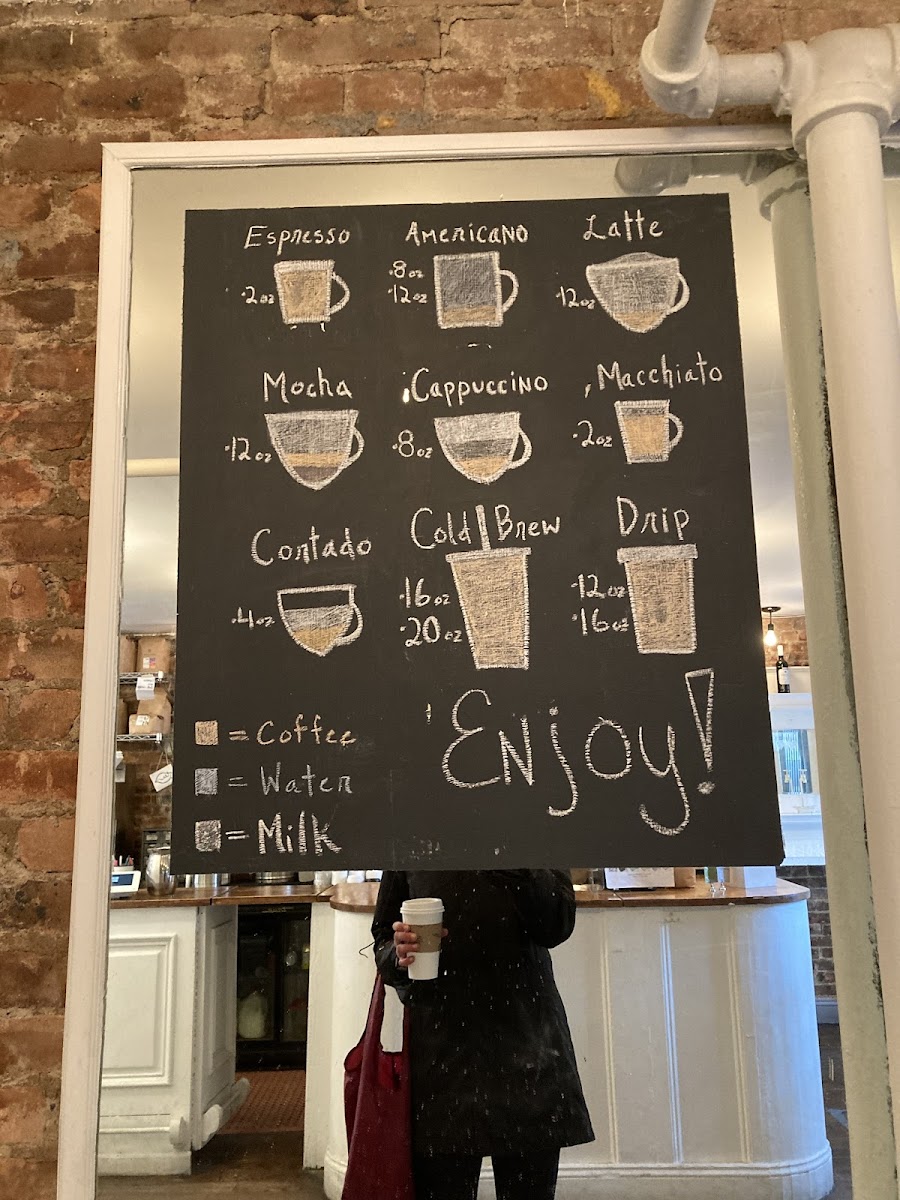 Espresso
·2oz
Americano
·8oz
·12oz
Latte
·12oz
Mocha
·12oz
Cappuccino
·8oz
Macchiato
·2oz
Cortado
·4oz
Cold Brew
·16oz
·20oz
Drip
·12oz
·16oz
= Coffee
= Water
= Milk
Enjoy!